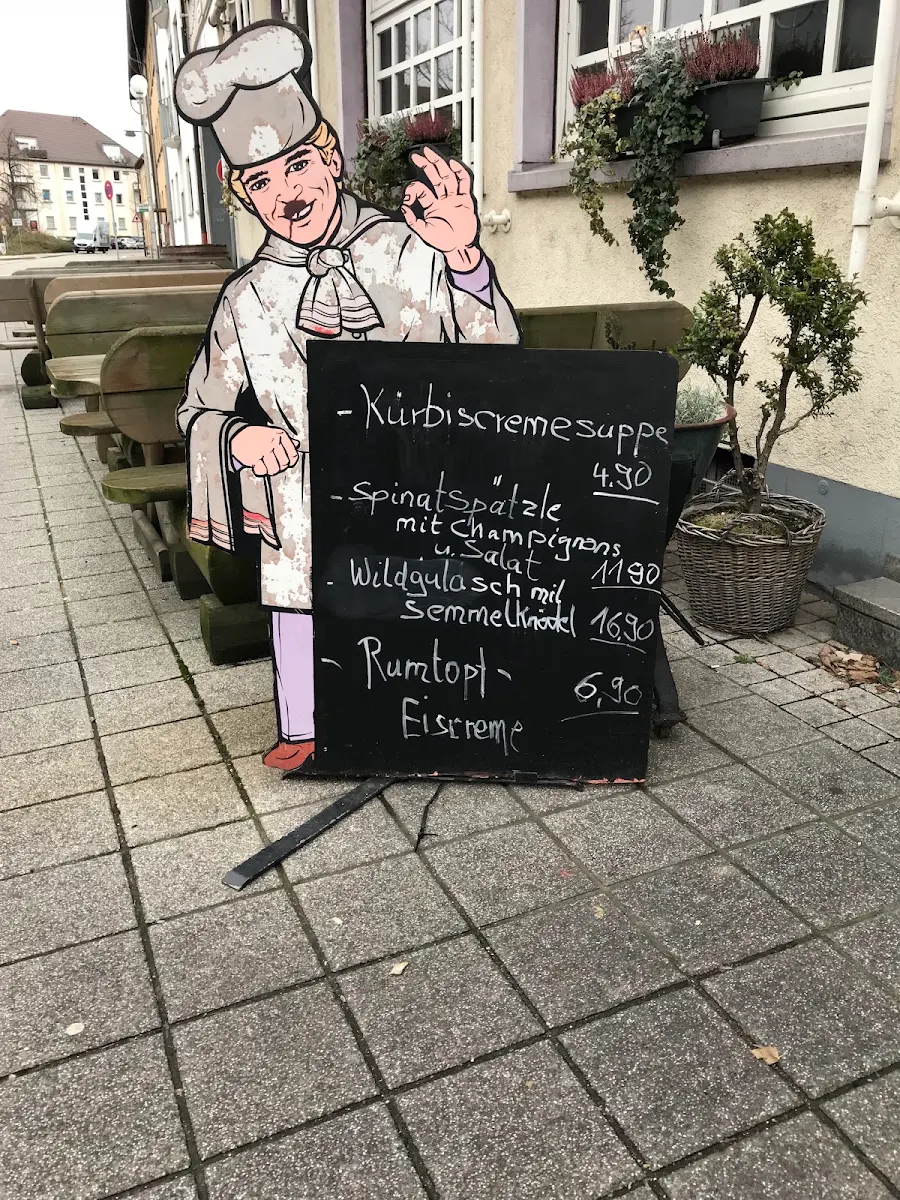 - Kürbiscremesuppe
4.90
- Spinatspätzle
mit Champignons
u. Salat 1190
- Wildgulasch mit
Semmelknödel 16,90
- Rumtopf-
6,90
Eiscreme